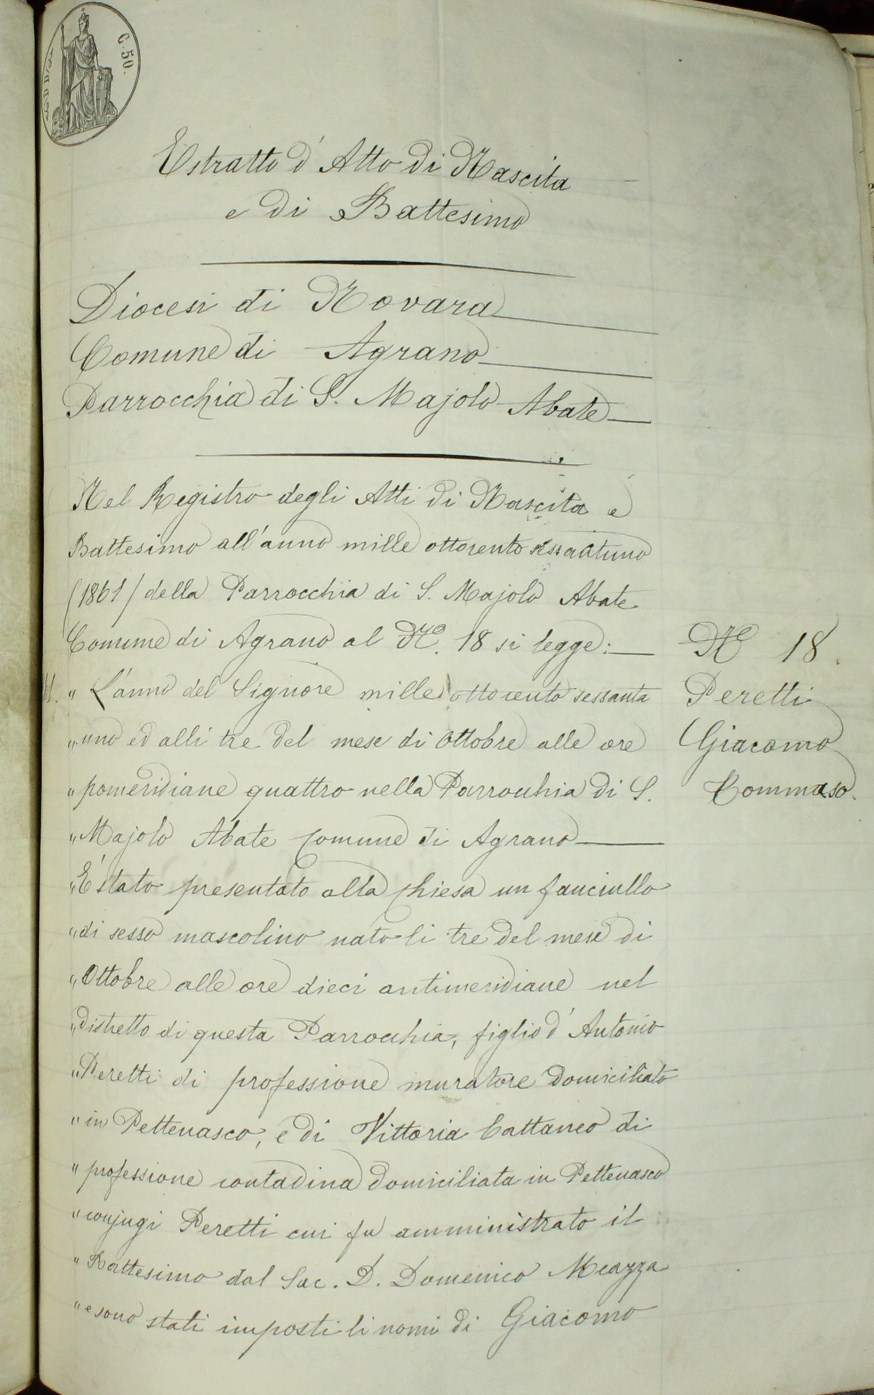 C. 50.
Estratto d' Atto di Nascita
e di Battesimo
Diocesi di Novara
Comune di Agrano
Parrocchia di S. Majolo Abate
Nel Registro degli Atti di Nascita e
Battesimo all'anno mille ottocento sessantuno
(1861) della Parrocchia di S. Majolo Abate
Comune di Agrano al N.º 18 si legge:
" L'anno del Signore mille ottocento sessanta
" uno ed alli tre del mese di Ottobre alle ore
" pomeridiane quattro nella Parrochia di S.
" Majolo Abate Comune di Agrano
" È stato presentato alla Chiesa un fanciullo
" di sesso mascolino nato li tre del mese di
" Ottobre alle ore dieci antimeridiane nel
" distretto di questa Parrochia, figlio d' Antonio
" Peretti di professione muratore domiciliato
" in Pettenasco, e di Vittoria Cattaneo di
" professione contadina domiciliata in Pettenasco
" conjugi Peretti cui fu amministrato il
" Battesimo dal Sac. D. Domenico Meazza
" e sono stati imposti li nomi di Giacomo
Nº 18.
Peretti
Giacomo
Tommaso.